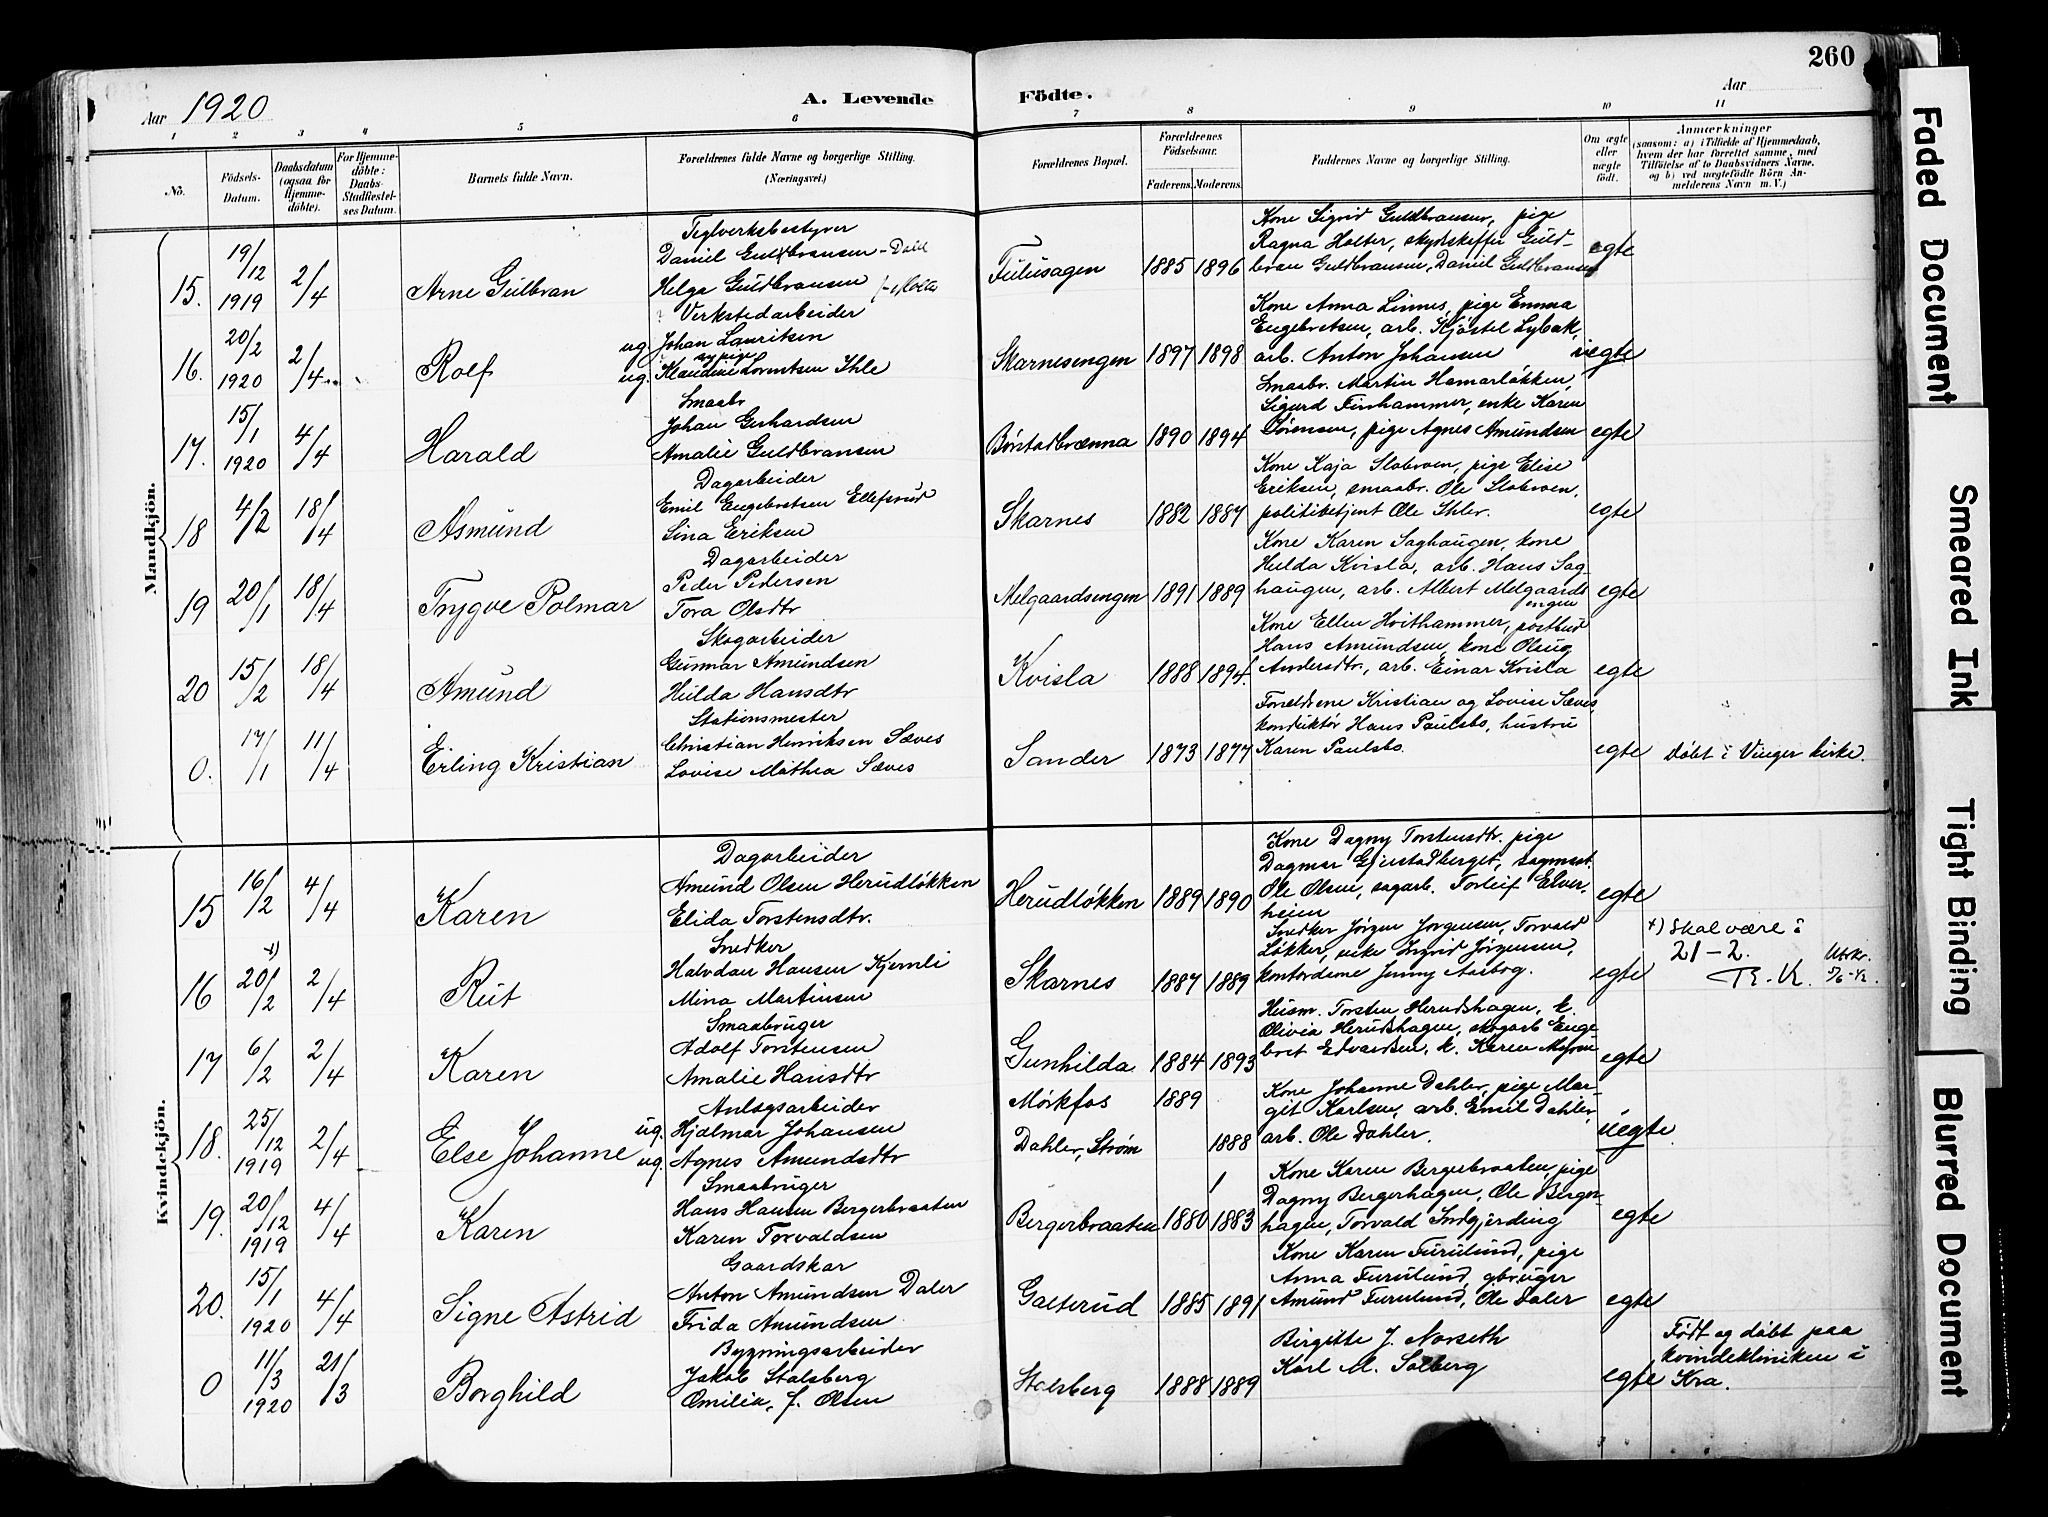 260
Aar 1920
A. Levende
Födte.
Aar
1 2 3 4 5 6 7 8 9 10 11
No.
Födsels-Datum.
Daabsdatum (ogsaa for Hjemme-döbte).
For Hjemme-döbte: Daabs-Stadfæstel-ses Datum.
Barnets fulde Navn.
Forældrenes fulde Navne og borgerlige Stilling.
(Næringsvei.)
Forældrenes Bopæl.
Forældrenes Födselsaar.
Faderens. Moderens.
Faddernes Navne og borgerlige Stilling.
Om ægte eller uægte födt.
Anmærkninger
(saasom: a) i Tilfælde af Hjemmedaab,
hvem der har forrettet samme, med
Tilföielse af to Daabsvidners Navne,
og b) ved uægtefödte Börn An-
melderens Navn m. V.)
Mandkjön.
15. 19/12 1919 2/4 Arne Gulbran
Teglverksbestyrer
Daniel Guldbransen - Dahl
Helga Guldbransen
Fulusagen 1885 1896
Kone Sigrid Guldbransen, pige
Ragna Holter, skydskaffer Guld-
bran Guldbransen, Daniel Guldbransen
egte
16. 20/2 1920 2/4 Rolf
Verkstedarbeider
ug. Johan Lauritsen
sypige
ug. Klaudine Lorentsen Ihle
Skarnesengen 1897 1898
Kone Anna Linnes, pige Emma
Engebretsen, arb. Kjøstel Lybæk,
arb. Anton Johansen
uegte
17. 15/1 1920 4/4 Harald
Smaabr
Johan Gerhardsen
Amalie Guldbransen
Børstadbrænna 1890 1894
Smaabr. Martin Hamarløkken,
Sigurd Finhammer, enke Karen
Sørensen, pige Agnes Amundsen
egte
18 4/2 18/4 Asmund
Dagarbeider
Emil Engebretsen Ellefsrud
Lina Eriksen
Skarnes 1882 1887
Kone Kaja Slobroen, pige Elise
Eriksen, smaabr. Ole Slobroen,
politibetjent Ole Ihler.
egte
19 20/1 18/4 Trygve Polmar
Dagarbeider
Peder Pedersen
Tora Olsdtr
Melgaardsengen 1891 1889
Kone Karen Saghaugen, kone
Hulda Kvisla, arb. Hans Sag-
haugen, arb. Albert Melgaards
engen
egte
20 15/2 18/4 Amund
Skogarbeider
Gunnar Amundsen
Hulda Hansdtr
Kvisla 1888 1894.
Kone Ellen Hvithammer, postbud
Hans Amundsen, kone Oleug
Andersdtr, arb. Einar Kvisla
egte
0. 17/1 11/4 Erling Kristian
Stationsmester
Christian Henriksen Sæves
Lovise Mathea Sæves
Sander 1873 1877
Forældrene Kristian og Lovise Sæves,
konduktør Hans Paulsbo, hustru
Karen Paulsbo.
egte
Døbt i Vinger kirke.
Kvindekjön.
15 16/2 4/4 Karen
Dagarbeider
Amund Olsen Herudløkken
Elida Torstensdtr.
Herudløkken 1889 1890
Kone Dagny Torstensdtr. pige
Dagmar Gjerstadberget, sagmest.
Ole Olsen, sagarb. Torleif Elver-
heien
egte
16 +) 20/2 2/4 Rut
Snedker
Halvdan Hansen Kjernli
Mina Martinsen
Skarnes 1887 1889
Snedker Jørgen Jørgensen, Torvald
Løkker, enke Ingrid Jørgensen,
kontordame Jenny Aasbog.
egte
+) Skal være i
21-2.
R. K.
17 6/2 2/4 Karen
Smaabruger
Adolf Torstensen
Amalie Hansdtr
Gunhilda 1884 1893
Husm. Torsten Herudshagen, k.
Olivia Herudshagen, skogarb Enge
bret Edvardsen, k. Karen Myren
egte
18. 25/12 1919 2/4 Else Johanne
Anlægsarbeider
ug. Hjalmar Johansen
ug. Agnes Amundsdtr
Mørkfos 1889
Dahler, Strøm 1888
Kone Johanne Dahler, pige Mar-
git Karlsen, arb. Emil Dahler,
arb. Ole Dahler.
uegte
19. 20/12 1919 4/4 Karen
Smaabruger
Hans Hansen Bergerbraaten
Karen Torvaldsen
Bergerbraaten 1880 1883
Kone Karen Bergerbraaten, pige
Dagny Bergerhagen, Ole Berger-
hagen, Torvald Indgjerding
egte
20. 15/1 1920 4/4 Signe Astrid
Gaardskar
Anton Amundsen Daler
Frida Amundsen
Galterud 1885 1891
Kone Karen Furulund, pige
Anna Furulund, gbruger
Amund Furulund, Ole Daler
egte
0 11/3 1920 21/3 Borghild
Bygningsarbeider
Jakob Stalsberg
Emilia, f. Olsen
Stalsberg 1888 1889
Birgitte J. Norseth
Karl M. Solberg
egte
Født og døbt paa
kvindekliniken i
Kra.
Faded Document
Smeared Ink
Tight Binding
Blurred Document